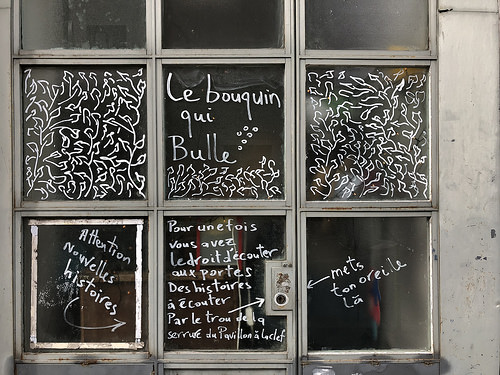 Le bouquin
qui
Bulle
Attention
nouvelles
histoires
Pour une fois
vous avez
le droit d'écouter
aux portes
Des histoires
à écouter
Par le trou de la
serrure du Pavillon à la clef
mets
ton oreille
là